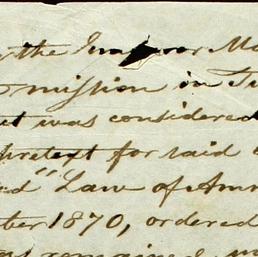 the Emperor Ma
mission in Tu
was considered
pretext for said
" Law of Amn
ber 1870, ordered
remained